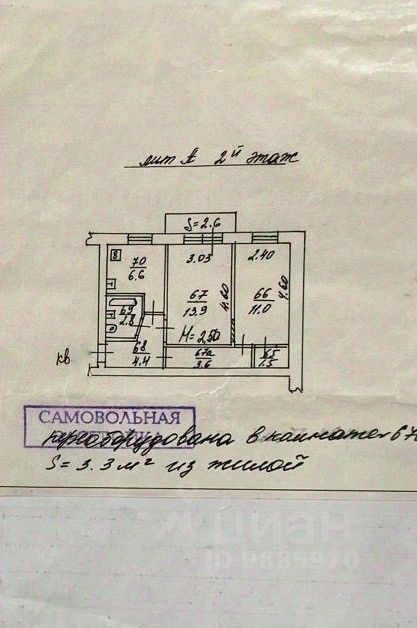 лит А 2й этаж
S=2.6
70
6.6
3.03
2.40
67
13.9
4.60
66
11.0
4.60
69
2.8
H=2.50
кв
68
4.4
67а
3.6
65
1.5
САМОВОЛЬНАЯ
переоборудована в комнате 67
S=3.3 м² из жилой
циан
ID 9885970